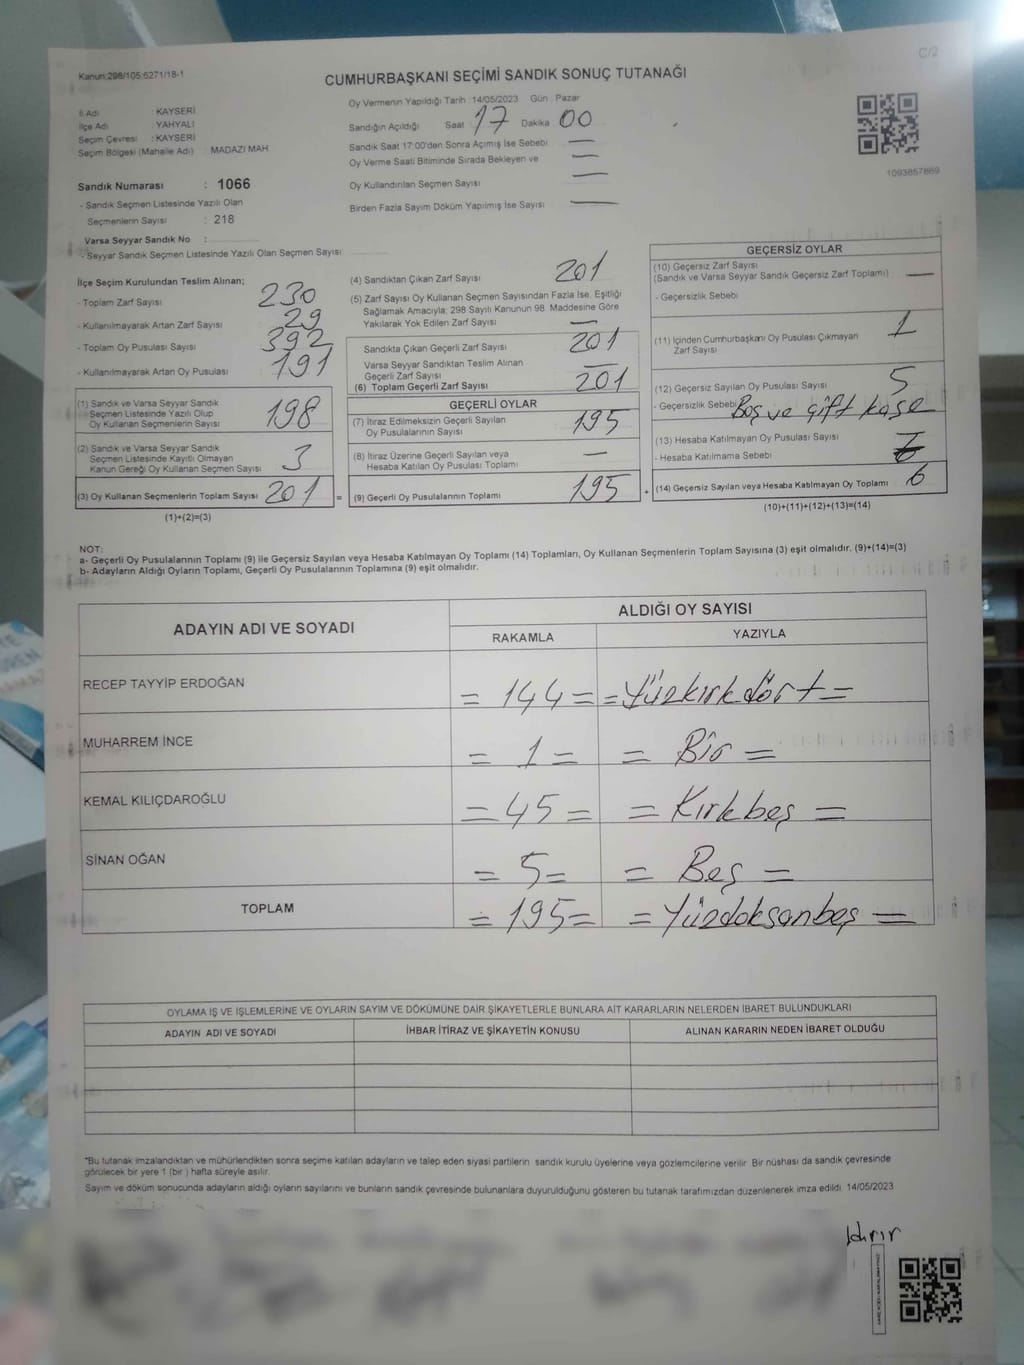 C/2
Kanun:298/105;6271/18-1
CUMHURBAŞKANI SEÇİMİ SANDIK SONUÇ TUTANAĞI
İl Adı : KAYSERİ
İlçe Adı : YAHYALI
Seçim Çevresi : KAYSERİ
Seçim Bölgesi (Mahalle Adı) : MADAZI MAH.
Sandık Numarası : 1066
- Sandık Seçmen Listesinde Yazılı Olan
Seçmenlerin Sayısı : 218
Varsa Seyyar Sandık No :
- Seyyar Sandık Seçmen Listesinde Yazılı Olan Seçmen Sayısı:
Oy Vermenin Yapıldığı Tarih : 14/05/2023 Gün : Pazar
Sandığın Açıldığı Saat 17 Dakika 00
Sandık Saat 17:00'den Sonra Açılmış İse Sebebi —
Oy Verme Saati Bitiminde Sırada Bekleyen ve —
Oy Kullandırılan Seçmen Sayısı —
Birden Fazla Sayım Döküm Yapılmış İse Sayısı —
1093857869
İlçe Seçim Kurulundan Teslim Alınan;
- Toplam Zarf Sayısı 230
- Kullanılmayarak Artan Zarf Sayısı 29
- Toplam Oy Pusulası Sayısı 392
- Kullanılmayarak Artan Oy Pusulası 191
(1) Sandık ve Varsa Seyyar Sandık
Seçmen Listesinde Yazılı Olup
Oy Kullanan Seçmenlerin Sayısı 198
(2) Sandık ve Varsa Seyyar Sandık
Seçmen Listesinde Kayıtlı Olmayan
Kanun Gereği Oy Kullanan Seçmen Sayısı 3
(3) Oy Kullanan Seçmenlerin Toplam Sayısı 201 =
(1)+(2)=(3)
(4) Sandıktan Çıkan Zarf Sayısı 201
(5) Zarf Sayısı Oy Kullanan Seçmen Sayısından Fazla İse, Eşitliği
Sağlamak Amacıyla; 298 Sayılı Kanunun 98. Maddesine Göre
Yakılarak Yok Edilen Zarf Sayısı —
Sandıkta Çıkan Geçerli Zarf Sayısı 201
Varsa Seyyar Sandıktan Teslim Alınan
Geçerli Zarf Sayısı —
(6) Toplam Geçerli Zarf Sayısı 201
GEÇERLİ OYLAR
(7) İtiraz Edilmeksizin Geçerli Sayılan
Oy Pusulalarının Sayısı 195
(8) İtiraz Üzerine Geçerli Sayılan veya
Hesaba Katılan Oy Pusulası Toplamı —
(9) Geçerli Oy Pusulalarının Toplamı 195 +
GEÇERSİZ OYLAR
(10) Geçersiz Zarf Sayısı
(Sandık ve Varsa Seyyar Sandık Geçersiz Zarf Toplamı) : —
- Geçersizlik Sebebi
(11) İçinden Cumhurbaşkanı Oy Pusulası Çıkmayan
Zarf Sayısı 1
(12) Geçersiz Sayılan Oy Pusulası Sayısı 5
- Geçersizlik Sebebi Boş ve çift kaşe
(13) Hesaba Katılmayan Oy Pusulası Sayısı
- Hesaba Katılmama Sebebi
(14) Geçersiz Sayılan veya Hesaba Katılmayan Oy Toplamı 6
(10)+(11)+(12)+(13)=(14)
NOT:
a- Geçerli Oy Pusulalarının Toplamı (9) ile Geçersiz Sayılan veya Hesaba Katılmayan Oy Toplamı (14) Toplamları, Oy Kullanan Seçmenlerin Toplam Sayısına (3) eşit olmalıdır. (9)+(14)=(3)
b- Adayların Aldığı Oyların Toplamı, Geçerli Oy Pusulalarının Toplamına (9) eşit olmalıdır.
ADAYIN ADI VE SOYADI
ALDIĞI OY SAYISI
RAKAMLA YAZIYLA
RECEP TAYYİP ERDOĞAN = 144 = = Yüzkırkdört =
MUHARREM İNCE = 1 = = Bir =
KEMAL KILIÇDAROĞLU = 45 = = Kırkbeş =
SİNAN OĞAN = 5 = = Beş =
TOPLAM = 195 = = Yüzdoksanbeş =
OYLAMA İŞ VE İŞLEMLERİNE VE OYLARIN SAYIM VE DÖKÜMÜNE DAİR ŞİKAYETLERLE BUNLARA AİT KARARLARIN NELERDEN İBARET BULUNDUKLARI
ADAYIN ADI VE SOYADI İHBAR İTİRAZ VE ŞİKAYETİN KONUSU ALINAN KARARIN NEDEN İBARET OLDUĞU
*Bu tutanak imzalandıktan ve mühürlendikten sonra seçime katılan adayların ve talep eden siyasi partilerin sandık kurulu üyelerine veya gözlemcilerine verilir. Bir nüshası da sandık çevresinde
görülecek bir yere 1 (bir) hafta süreyle asılır.
Sayım ve döküm sonucunda adayların aldığı oyların sayılarını ve bunların sandık çevresinde bulunanlara duyurulduğunu gösteren bu tutanak tarafımızdan düzenlenerek imza edildi. 14/05/2023